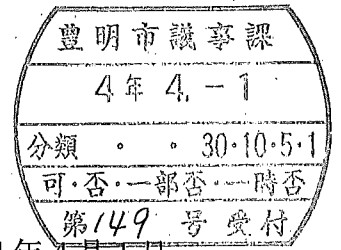 豊明市議事課
4年 4.-1
分類 ・ ・ 30・10・5・1
可・否・一部否・一時否
第149 号受付